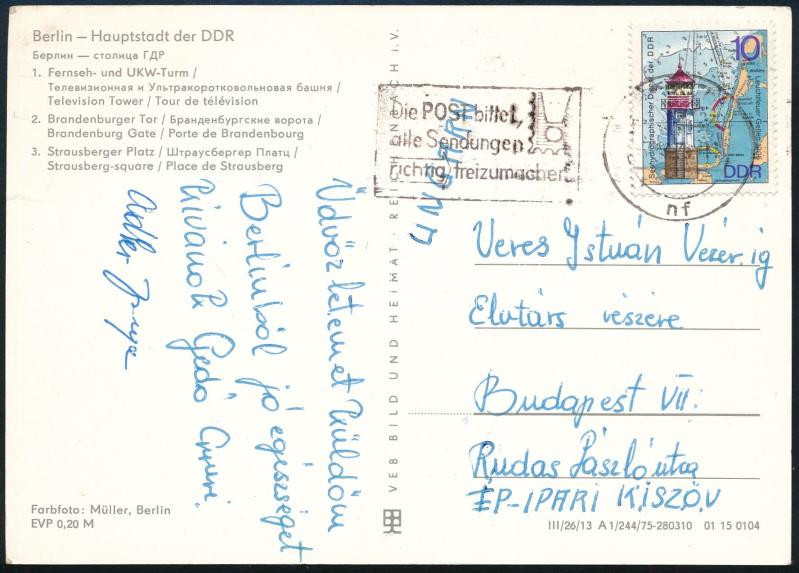 Berlin – Hauptstadt der DDR
Берлин — столица ГДР
1. Fernseh- und UKW-Turm /
Телевизионная и Ультракоротковольновая башня /
Television Tower / Tour de télévision
2. Brandenburger Tor / Бранденбургские ворота /
Brandenburg Gate / Porte de Brandenbourg
3. Strausberger Platz / Штраусбергер Платц /
Strausberg-square / Place de Strausberg
Die POST bittet,
alle Sendungen
richtig freizumachen
10
Seehydrographischer Dienst der DDR
DDR
nf
UNGARN
VEB BILD UND HEIMAT · REICHENBACH I.V.
Üdvözletemet küldöm
Berlinből jó egészséget
kivánok Gedó
Adler
Veres István Vezér.ig
Elvtárs részére
Budapest VII.
Rudas László utca
ÉP-IPARI KISZÖV
Farbfoto: Müller, Berlin
EVP 0,20 M
III/26/13 A 1/244/75-280310 01 15 0104